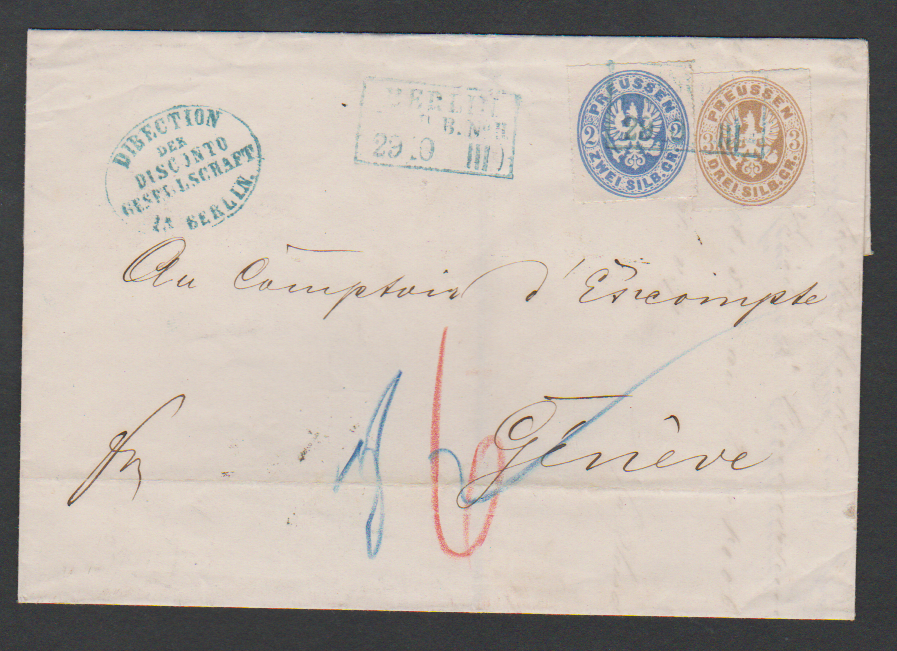 DIRECTION
DER
DISCONTO
GESELLSCHAFT
IN BERLIN.
BERLIN
B. No 11
29 10
PREUSSEN
2 29 2
ZWEI SILB.GR.
PREUSSEN
3 3
DREI SILB.GR.
Au Comptoir d'Escompte
Genève
6